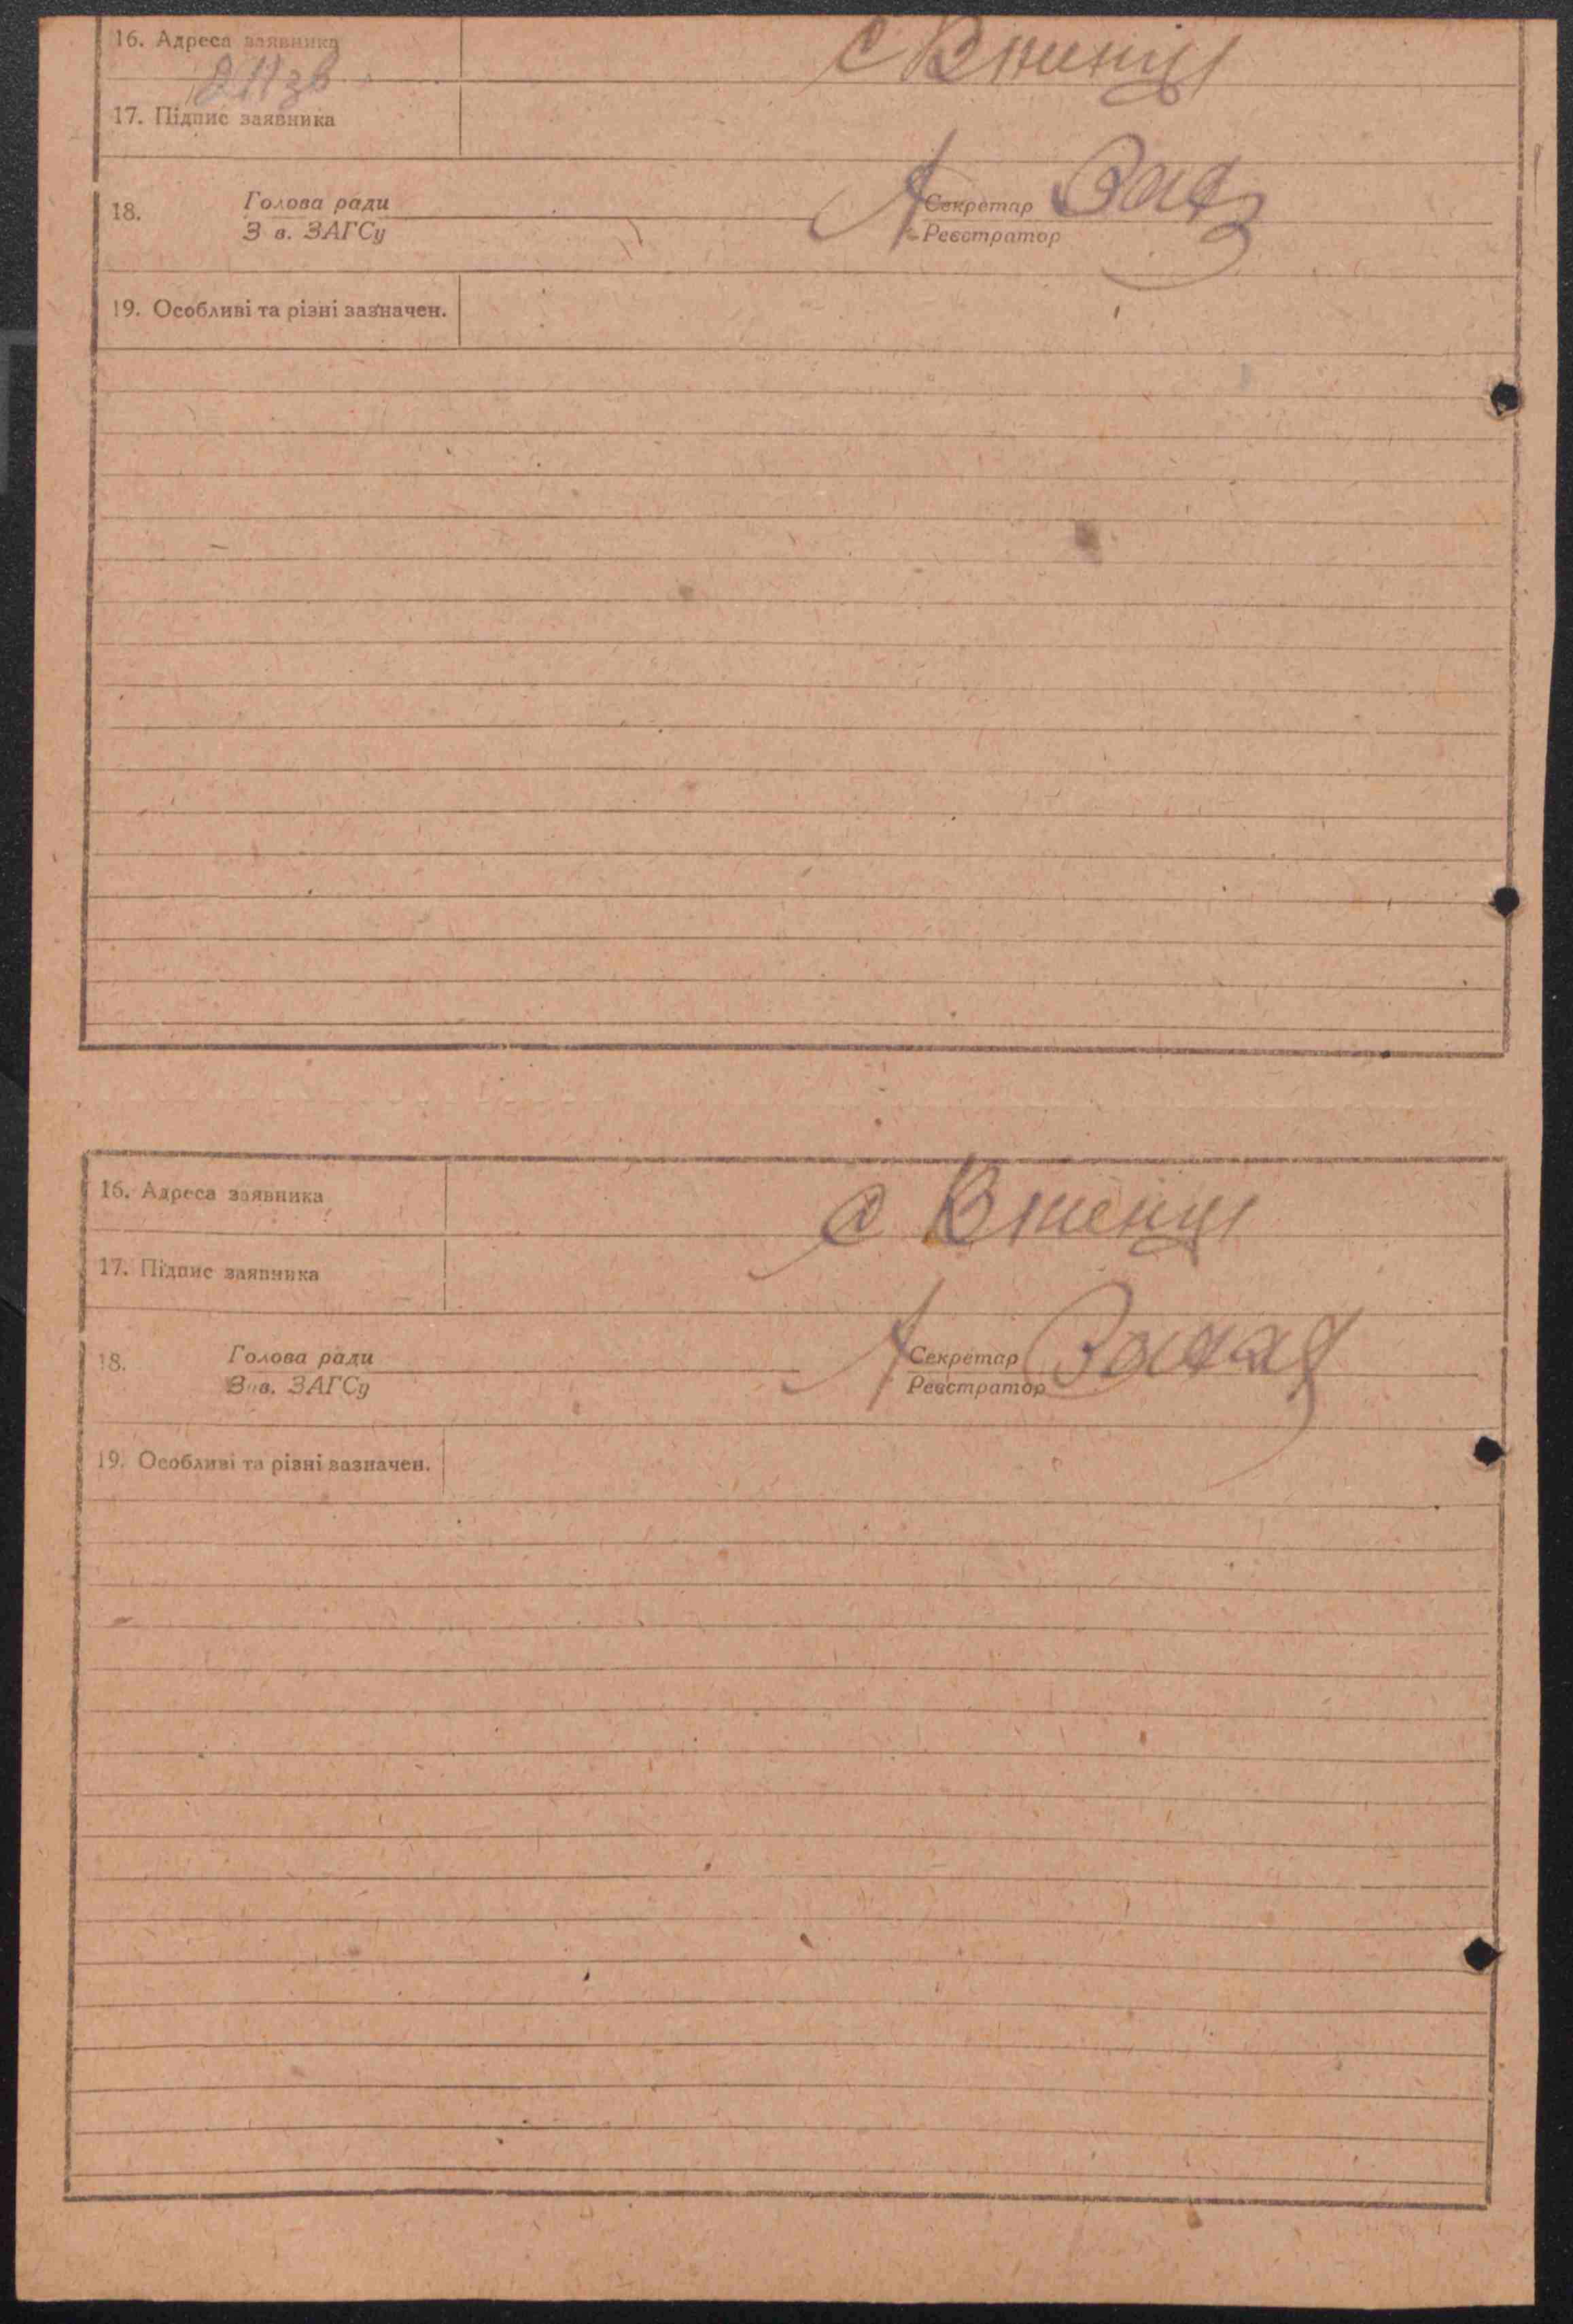 16. Адреса заявника
с Вшенці
17. Підпис заявника
18. Голова ради Секретар
Зав. ЗАГСу Реєстратор
19. Особливі та різні зазначен.
16. Адреса заявника
с Вшенці
17. Підпис заявника
18. Голова ради Секретар
Зав. ЗАГСу Реєстратор
19. Особливі та різні зазначен.